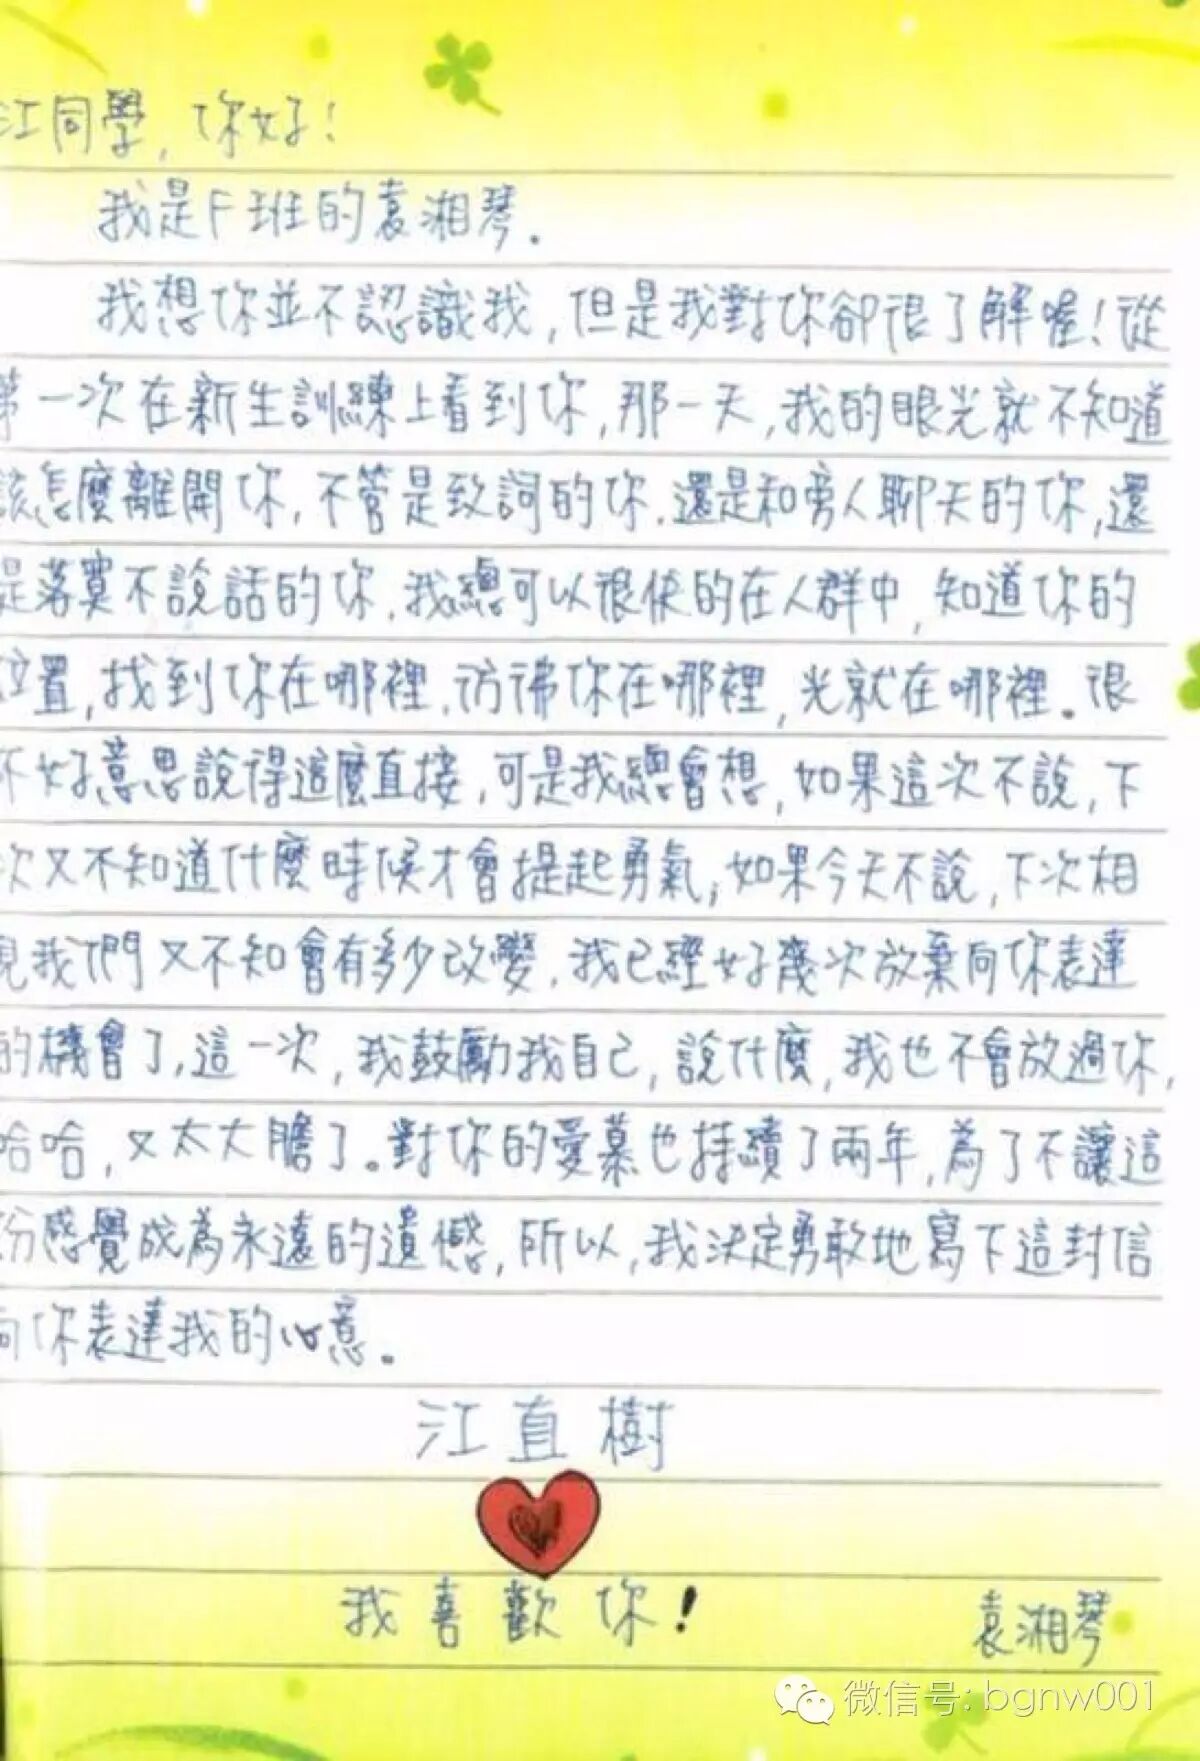 江同學，你好！
我是F班的袁湘琴.
我想你並不認識我，但是我對你卻很了解喔！從
第一次在新生訓練上看到你，那一天，我的眼光就不知道
該怎麼離開你，不管是致詞的你.還是和旁人聊天的你，還
是落寞不說話的你.我總可以很快的在人群中，知道你的
位置，找到你在哪裡.彷彿你在哪裡，光就在哪裡。很
不好意思說得這麼直接，可是我總會想，如果這次不說，下
次又不知道什麼時候才會提起勇氣，如果今天不說，下次相
見我們又不知會有多少改變.我已經好幾次放棄向你表達
的機會了，這一次，我鼓勵我自己，說什麼，我也不會放過你，
哈哈，又太大膽了。對你的愛慕也持續了兩年，為了不讓這
份感覺成為永遠的遺憾，所以，我決定勇敢地寫下這封信
向你表達我的心意。
江直樹
我喜歡你！ 袁湘琴
微信号: bgnw001